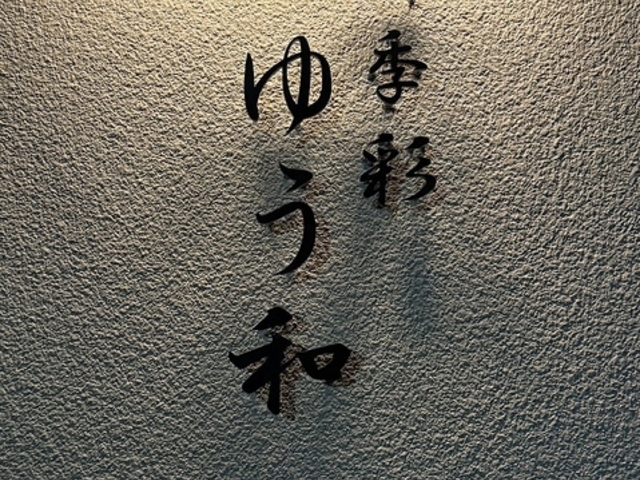 季彩
ゆう和